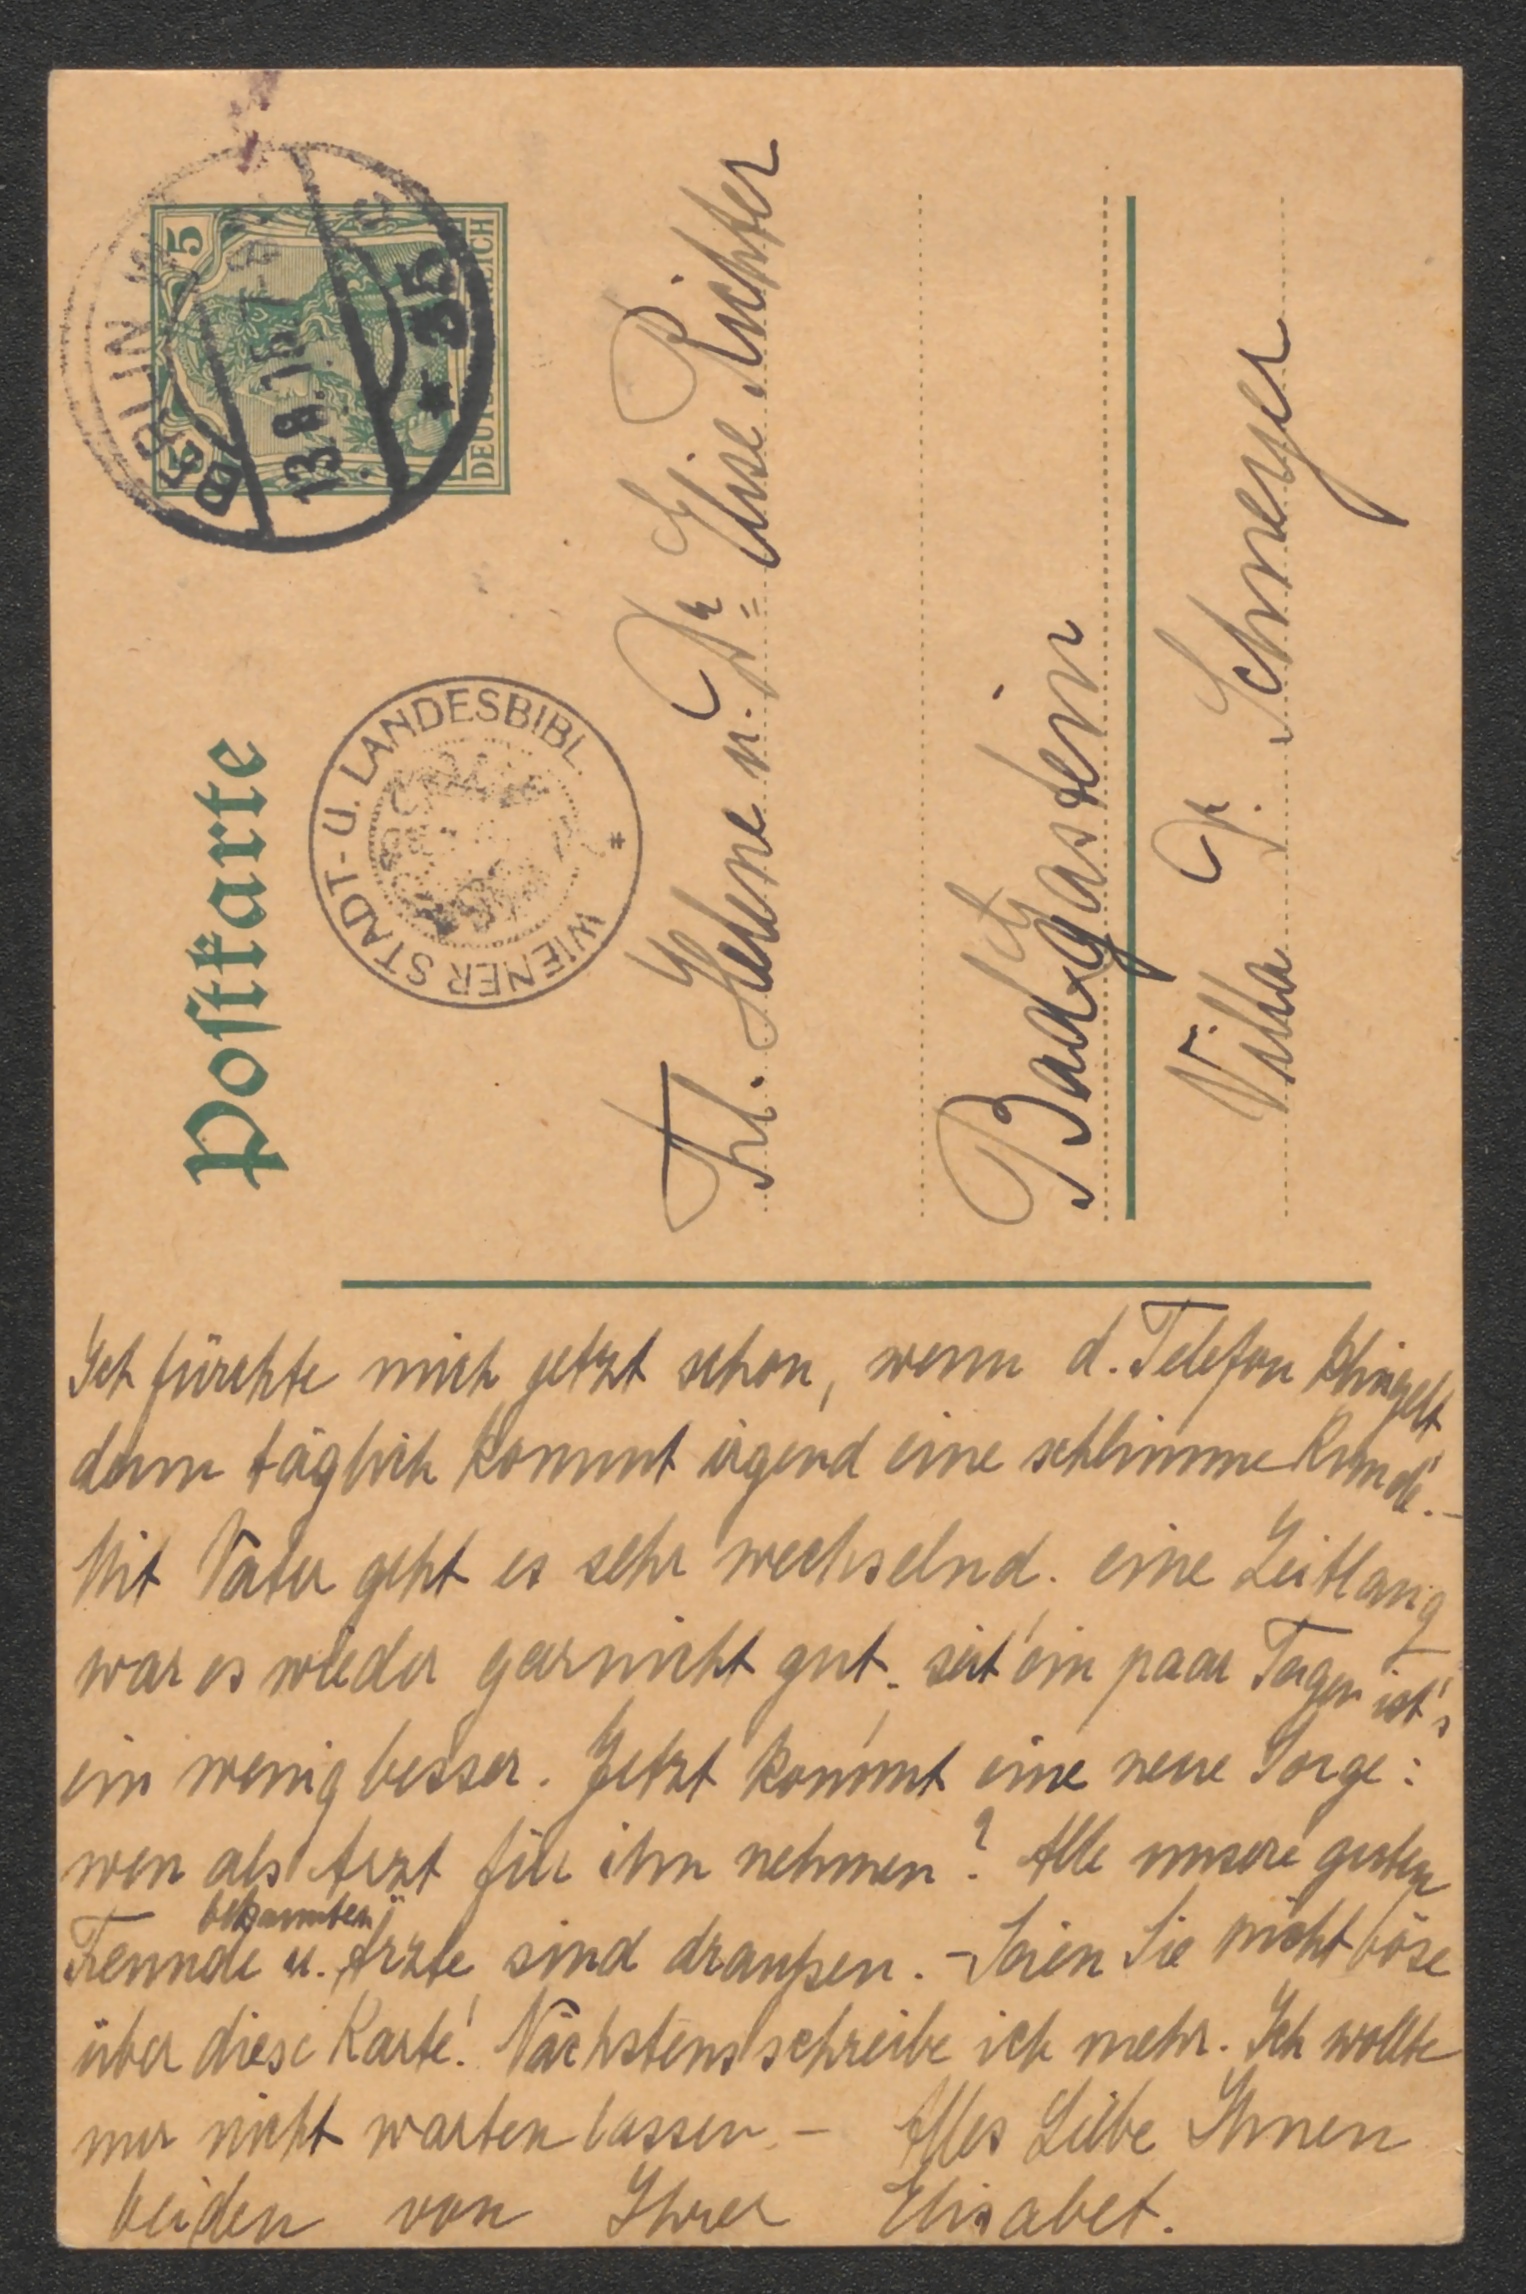 Postkarte
BERLIN W
13.8.15. 7-8 N
* 35 c
5
5
DEUTSCHES REICH
WIENER STADT- U. LANDESBIBL.
*
Frl. Helene u. Dr Elise Richter
Badgastein
Villa Dr. Schneyer
Ich fürchte mich jetzt schon, wenn d. Telefon klingelt
denn täglich kommt irgend eine schlimme Kunde. –
Mit Vater geht es sehr wechselnd. eine Zeitlang
war es wieder garnicht gut. seit ein paar Tagen ist's
ein wenig besser. Jetzt kommt eine neue Sorge:
wen als Arzt für ihn nehmen? Alle unsere guten
bekannten
Freunde u. Ärzte sind draußen. – Seien Sie nicht böse
über diese Karte! Nächstens schreibe ich mehr. Ich wollte
nur nicht warten lassen. – Alles Liebe Ihnen
beiden von Ihrer Elisabet.